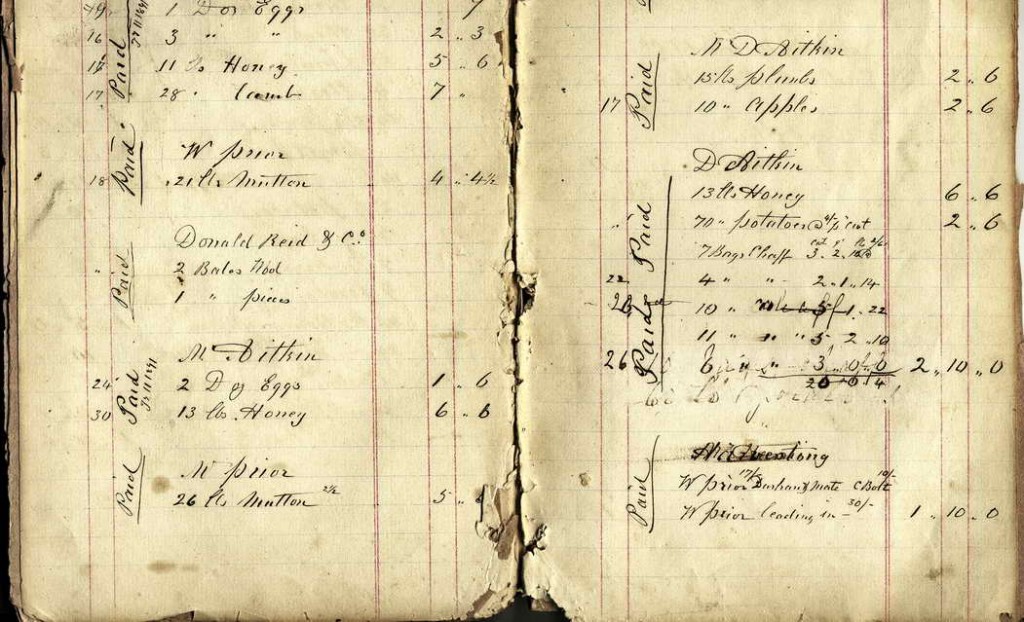 1 Doz Eggs
16 3 " " 2 .. 3
Paid
11 lbs Honey 5 .. 6
17 28 " Lamb 7 "
W Prior
Paid
18 21 lbs Mutton 4 .. 4½
Donald Reid & Co.
" Paid 2 Bales
1 "
Mr Aitkin
24 Paid 2 Doz Eggs 1 .. 6
30 13 lbs. Honey 6 .. 6
Mr Prior
Paid 26 lbs Mutton 2½ 5 ..
Mr D Aitkin
Paid 15 lbs plumbs 2 .. 6
17 10 " Apples 2 .. 6
D Aitkin
13 lbs Honey 6 .. 6
" Paid 70 " potatoes @ 4/ p cwt 2 .. 6
7 Bags Chaff 3 .. 2 ..
22 4 " " 2 .. 1 .. 14
10 " 5 1 .. 22
Paid
11 " " " 5 2 .. 10
26 6 " " 3 .. 0 .. 0 2 .. 10 .. 0
20 0 4
Paid
W Prior 17/ & Mate C Bolt 10/-
W Prior leading in - 30/- 1 .. 10 .. 0